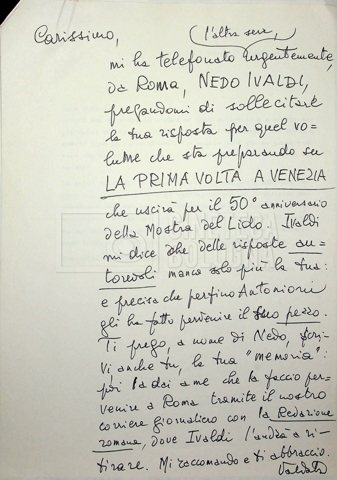 Carissimo, l'altra sera,
mi ha telefonato urgentemente,
da Roma, NEDO IVALDI,
pregandomi di sollecitare
la tua risposta per quel vo-
lume che sta preparando su
LA PRIMA VOLTA A VENEZIA
che uscirà per il 50° anniversario
della Mostra del Lido. Ivaldi
mi dice che delle risposte au-
torevoli manca solo più la tua:
e precisa che perfino Antonioni
gli ha fatto pervenire il suo pezzo.
Ti prego, a nome di Nedo, scri-
vi anche tu, la tua "memoria":
poi la dai a me che la faccio per-
venire a Roma tramite il nostro
corriere giornaliero con la Redazione
romana, dove Ivaldi l'andrà a ri-
tirare. Mi raccomando e ti abbraccio.